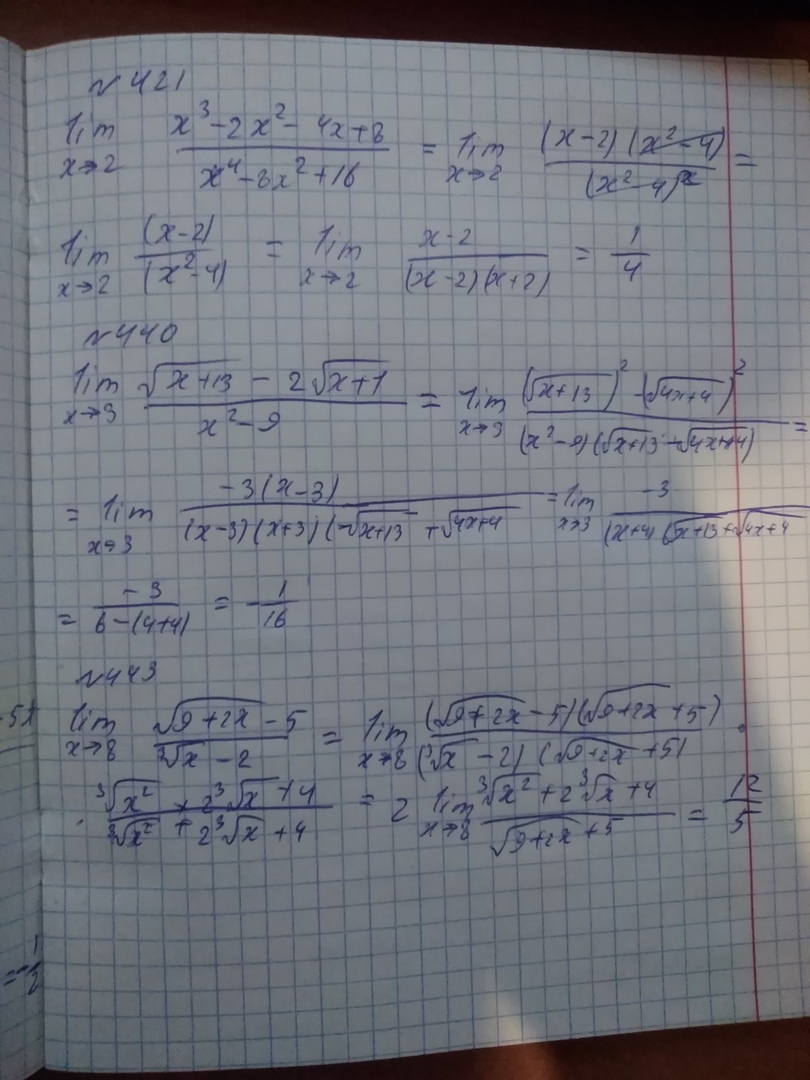 №421
lim x→2 (x³-2x²-4x+8)/(x⁴-8x²+16) = lim x→2 (x-2)(x²-4)/(x²-4)² =
lim x→2 (x-2)/(x²-4) = lim x→2 x-2/(x-2)(x+2) = 1/4
№440
lim x→3 (√(x+13) - 2√(x+1))/(x²-9) = lim x→3 ((√(x+13))² - (√(4x+4))²)/(x²-9)(√(x+13) + √(4x+4)) =
= lim x→3 -3(x-3)/(x-3)(x+3)(√(x+13) + √(4x+4) = lim x→3 -3/(x+4)(√(x+13) + √(4x+4)
= -3/6-(4+4) = -1/16
№443
-5x
lim x→8 (√(9+2x) - 5)/(∛x - 2) = lim x→8 (√(9+2x) - 5)(√(9+2x) + 5)/(∛x - 2)(√(9+2x) + 5) ·
· (∛x² + 2∛x + 4)/(∛x² + 2∛x + 4) = 2 lim x→8 (∛x² + 2∛x + 4)/(√(9+2x) + 5) = 12/5
=-1/2